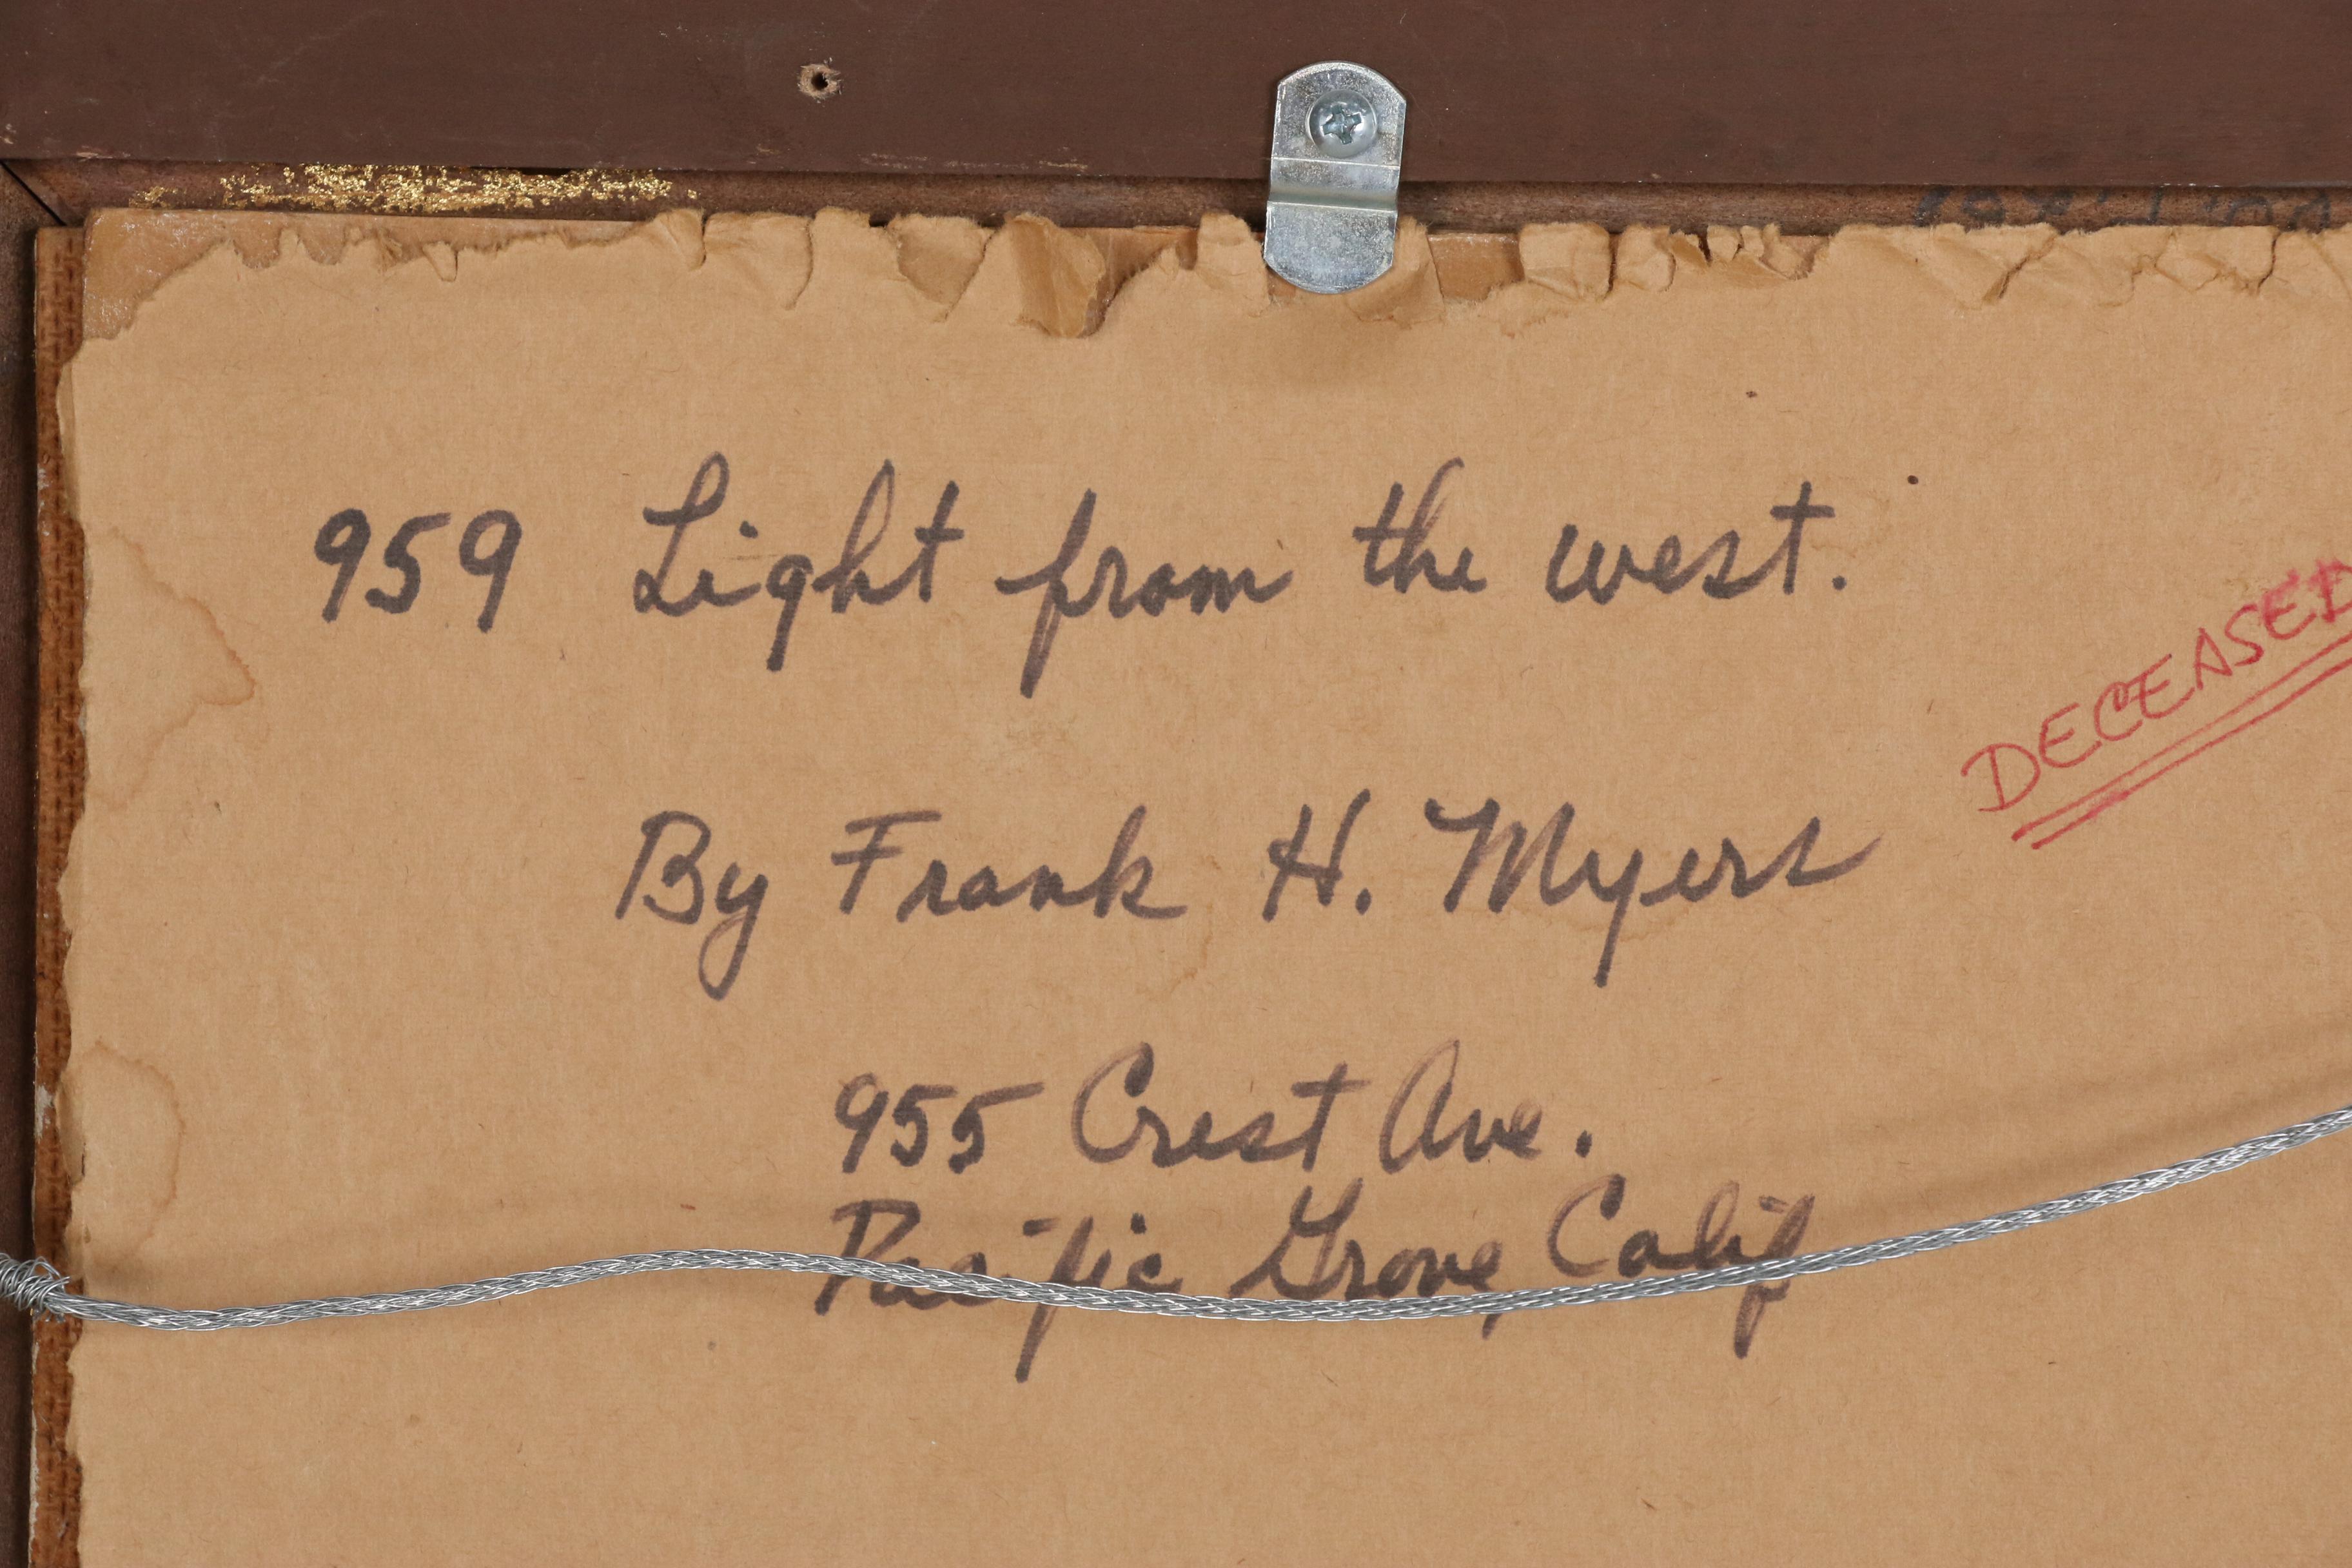 959 Light from the west.
DECEASED
By Frank H. Myers
955 Crest Ave.
Pacific Grove, Calif